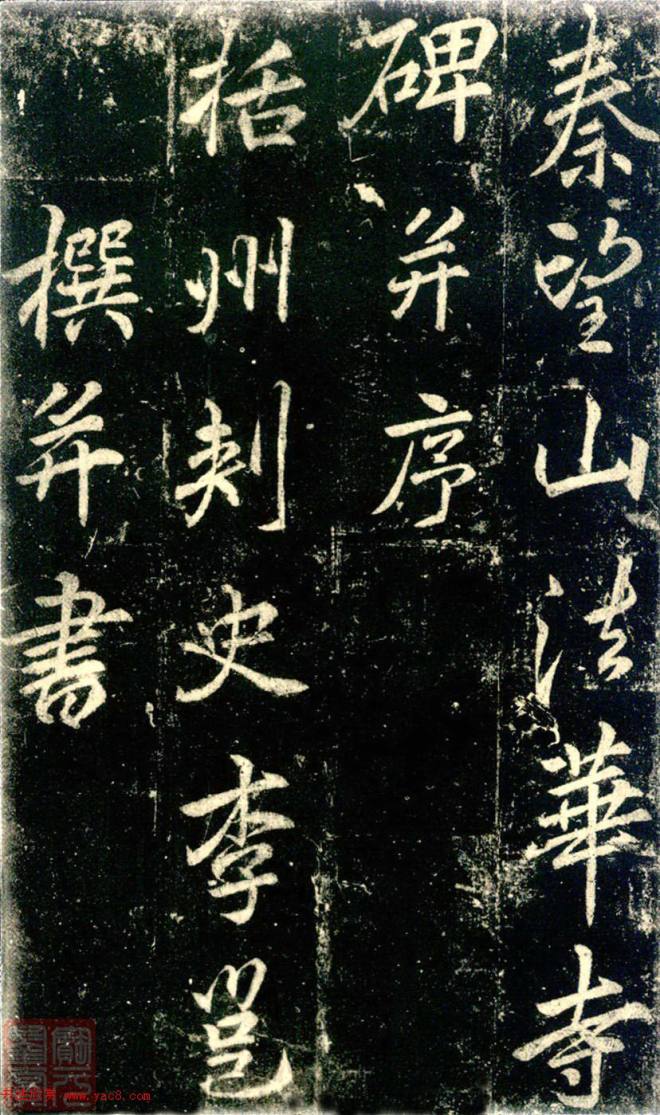 秦望山法華寺
碑并序
括州刺史李邕
撰并書
www.yac8.com